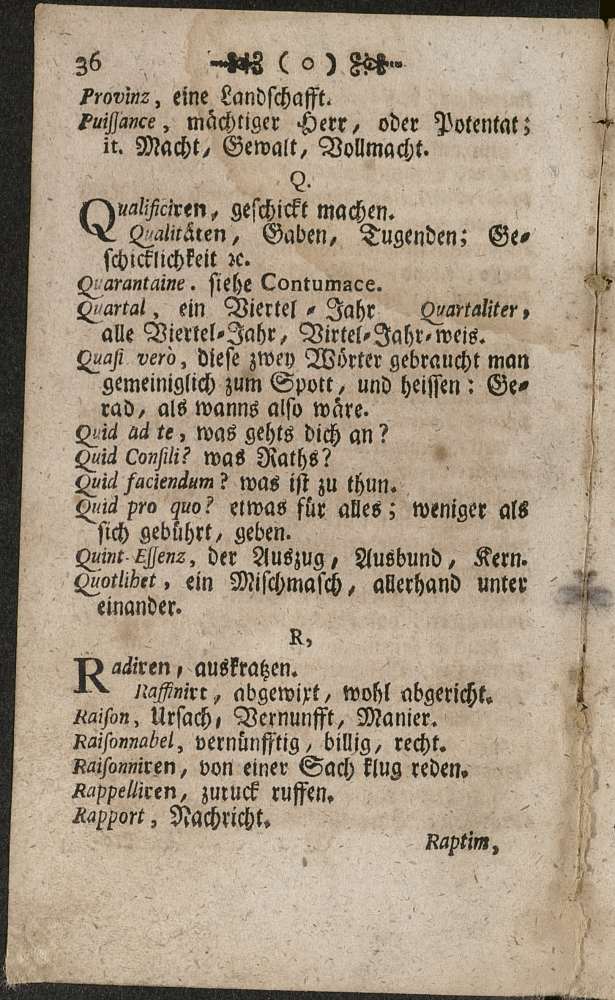 36 ( o )
Provinz, eine Landschafft.
Puiſſance, mächtiger Herr, oder Potentat;
it. Macht, Gewalt, Vollmacht.
Q.
Qualificiren, geschickt machen.
Qualitäten, Gaben, Tugenden; Ge-
schicklichkeit ꝛc.
Quarantaine. siehe Contumace.
Quartal, ein Viertel-Jahr Quartaliter,
alle Viertel-Jahr, Virtel-Jahr-weis.
Quaſi verò, diese zwey Wörter gebraucht man
gemeiniglich zum Spott, und heissen: Ge-
rad, als wanns also wäre.
Quid ad te, was gehts dich an?
Quid Conſili? was Raths?
Quid faciendum? was ist zu thun.
Quid pro quo? etwas für alles; weniger als
sich gebührt, geben.
Quint-Eſſenz, der Auszug, Ausbund, Kern.
Quotlibet, ein Mischmasch, allerhand unter
einander.
R,
Radiren, auskratzen.
Raffinirt, abgewixt, wohl abgericht.
Raiſon, Ursach, Vernunfft, Manier.
Raiſonnabel, vernünfftig, billig, recht.
Raiſonniren, von einer Sach klug reden.
Rappelliren, zuruck ruffen.
Rapport, Nachricht.
Raptim,